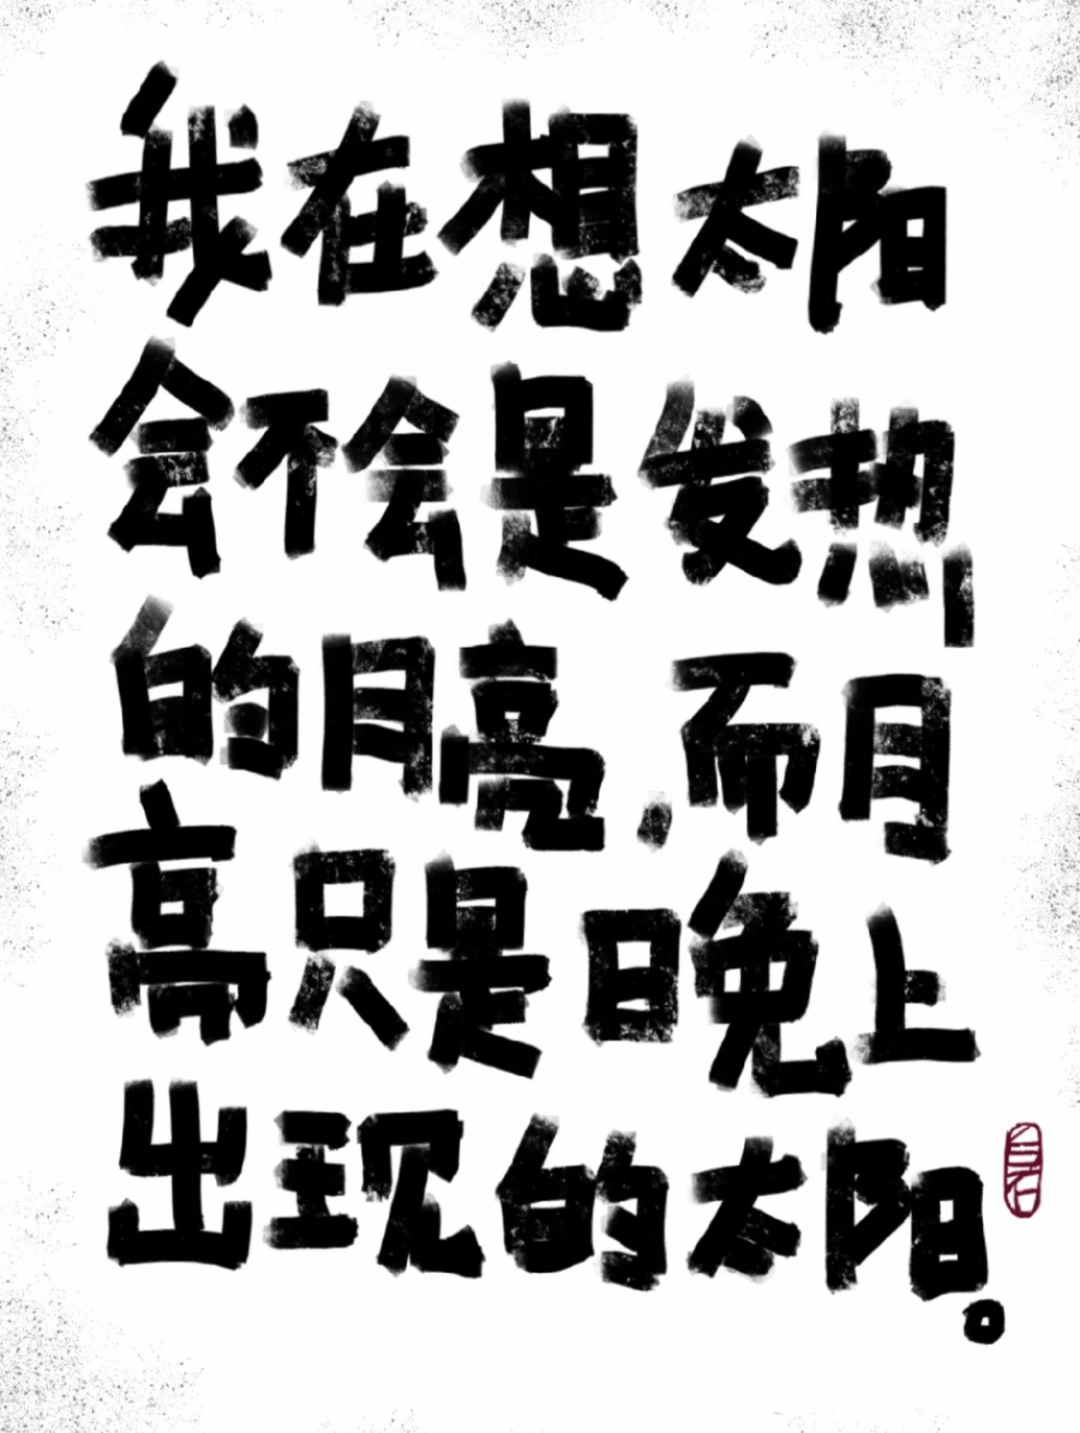 我在想太阳
会不会是发热
的月亮，而月
亮只是晚上
出现的太阳。